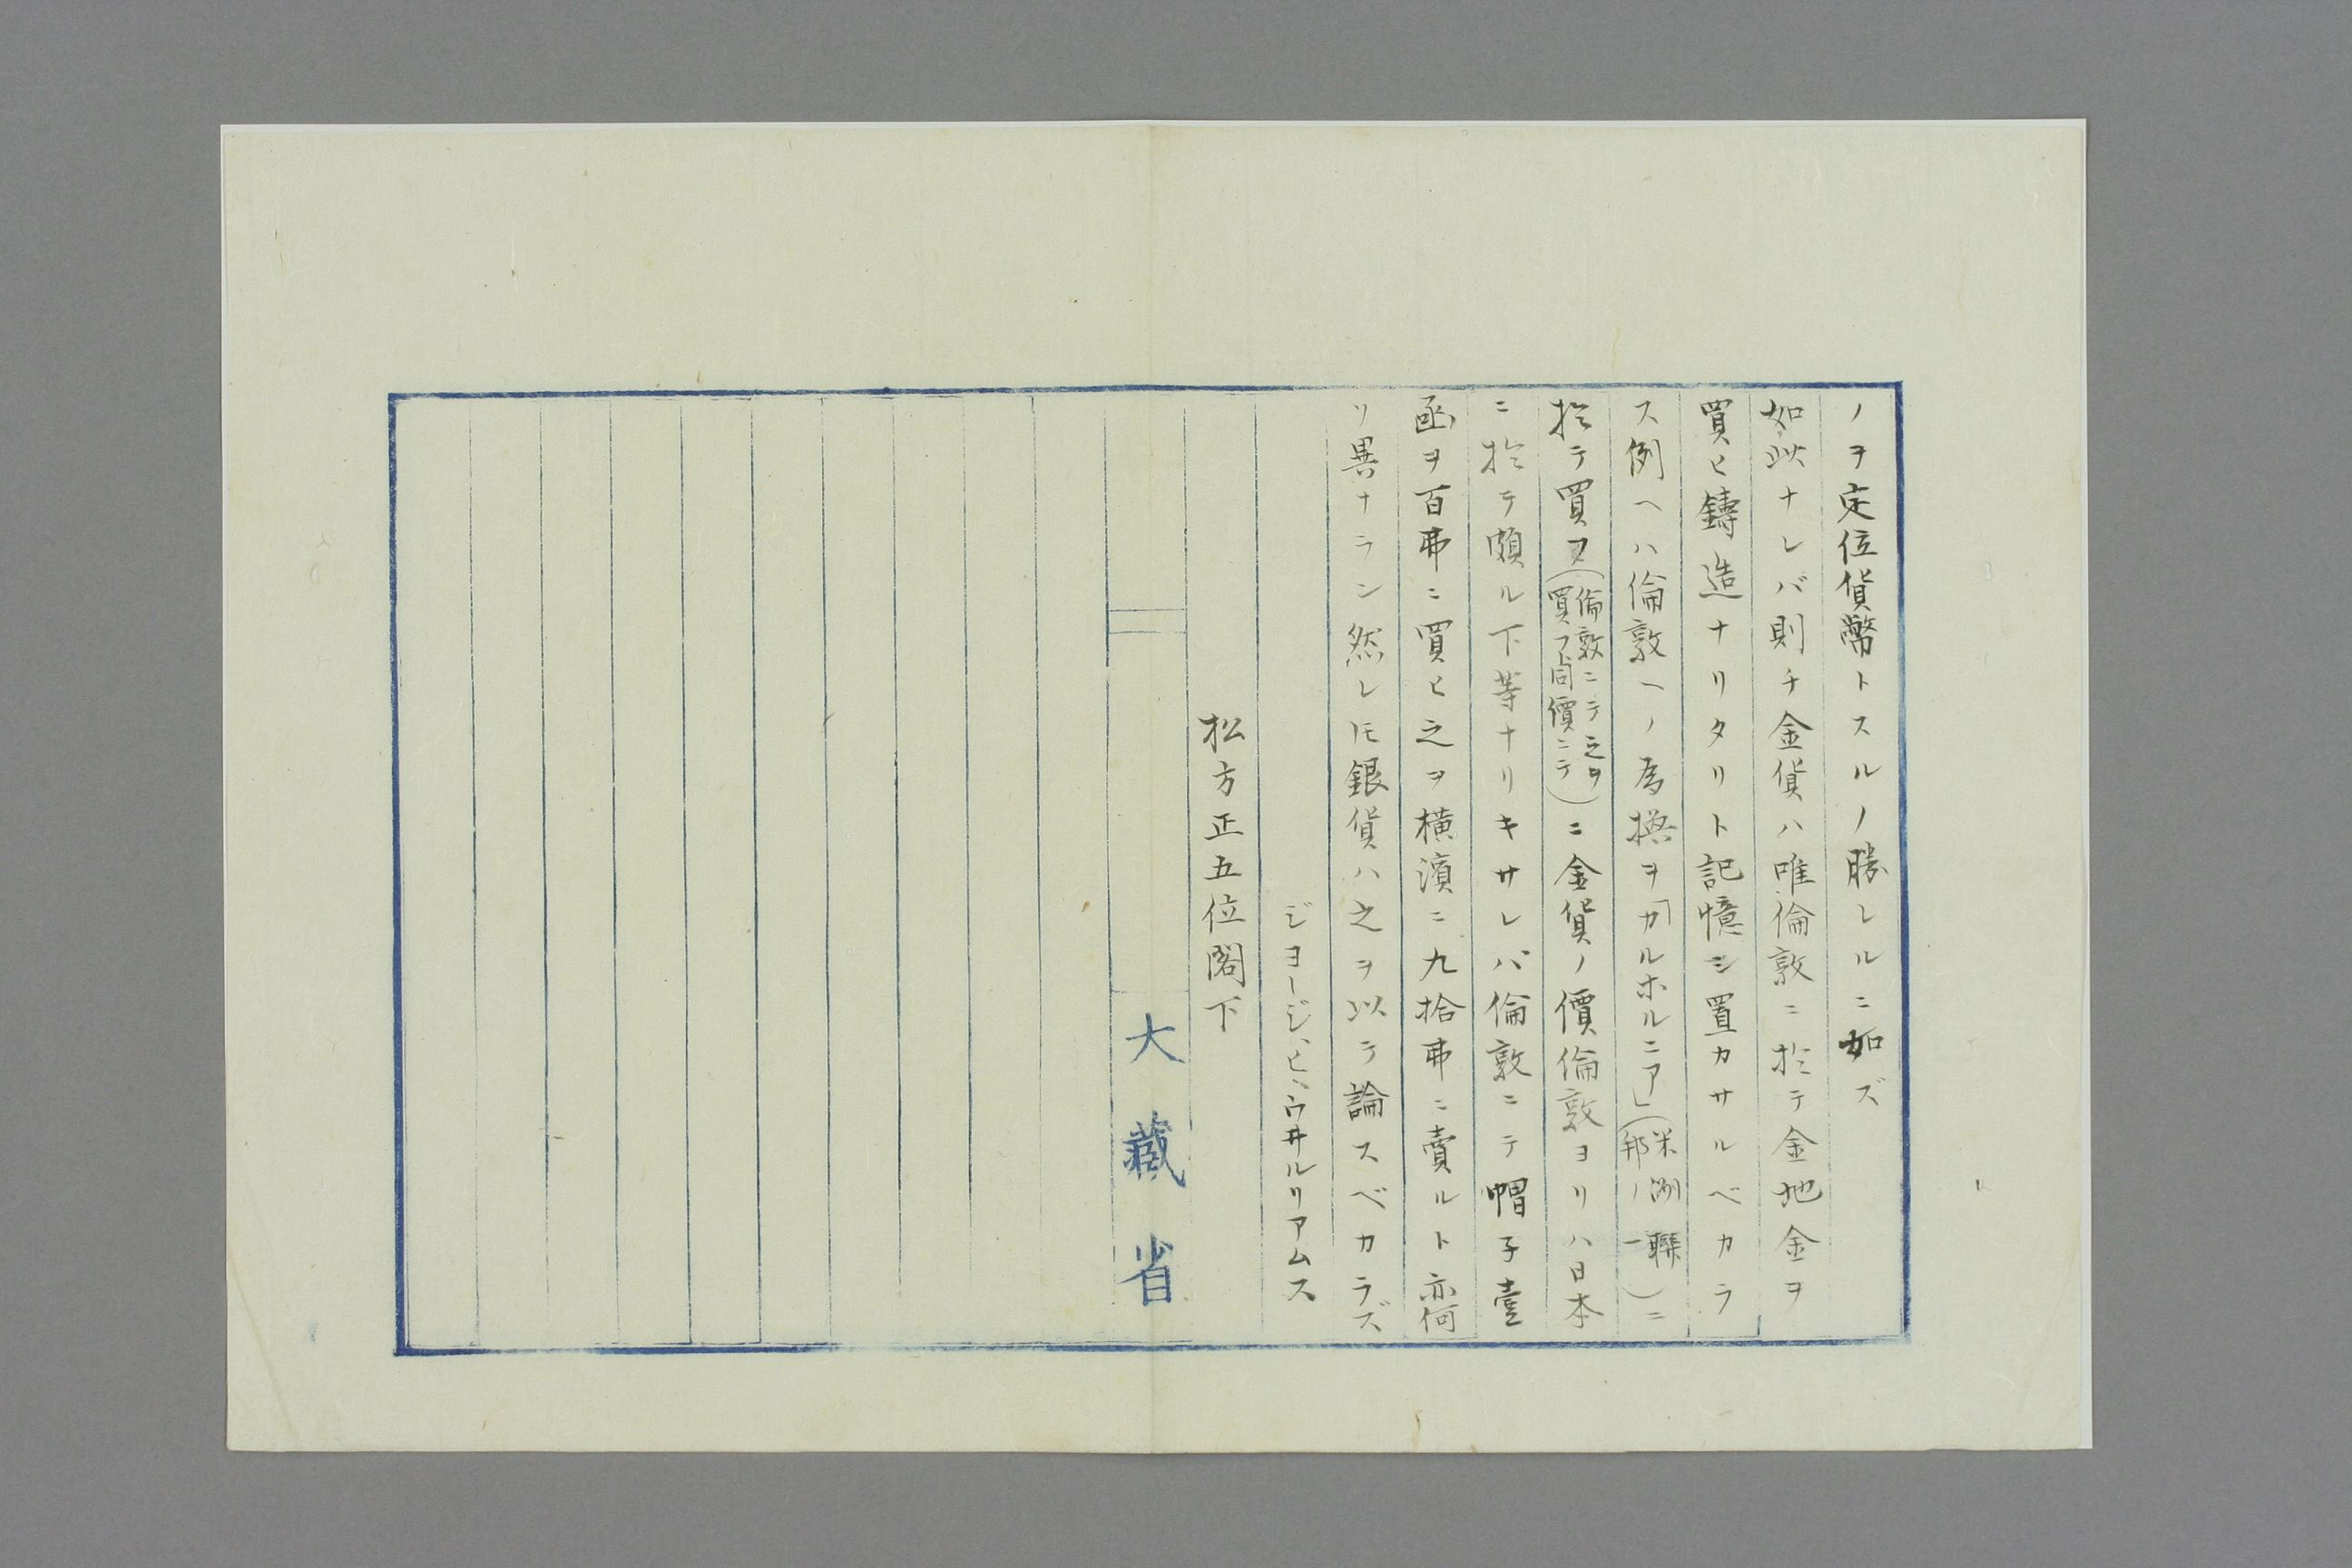 ノヲ定位貨幣トスルノ勝レルニ如ズ
如此ナレバ則チ金貨ハ唯倫敦ニ於テ金地金ヲ
買ヒ鑄造ナリタリト記憶シ置カサルベカラ
ス例ヘハ倫敦ヘノ為換ヲ「カルホルニア」(米洲聯邦ノ一)ニ
於テ買フ(倫敦ニテ之ヲ買フト同價ニテ)ニ金貨ノ價倫敦ヨリハ日本
ニ於テ頗ル下等ナリキサレバ倫敦ニテ帽子壹
函ヲ百弗ニ買ヒ之ヲ横濱ニ九拾弗ニ賣ルト亦何
リ異ナラン然レ𪜈銀貨ハ之ヲ以テ論スベカラズ
ジヨージ、ヒ、ウ井ルリアムス
松方正五位閣下
大藏省